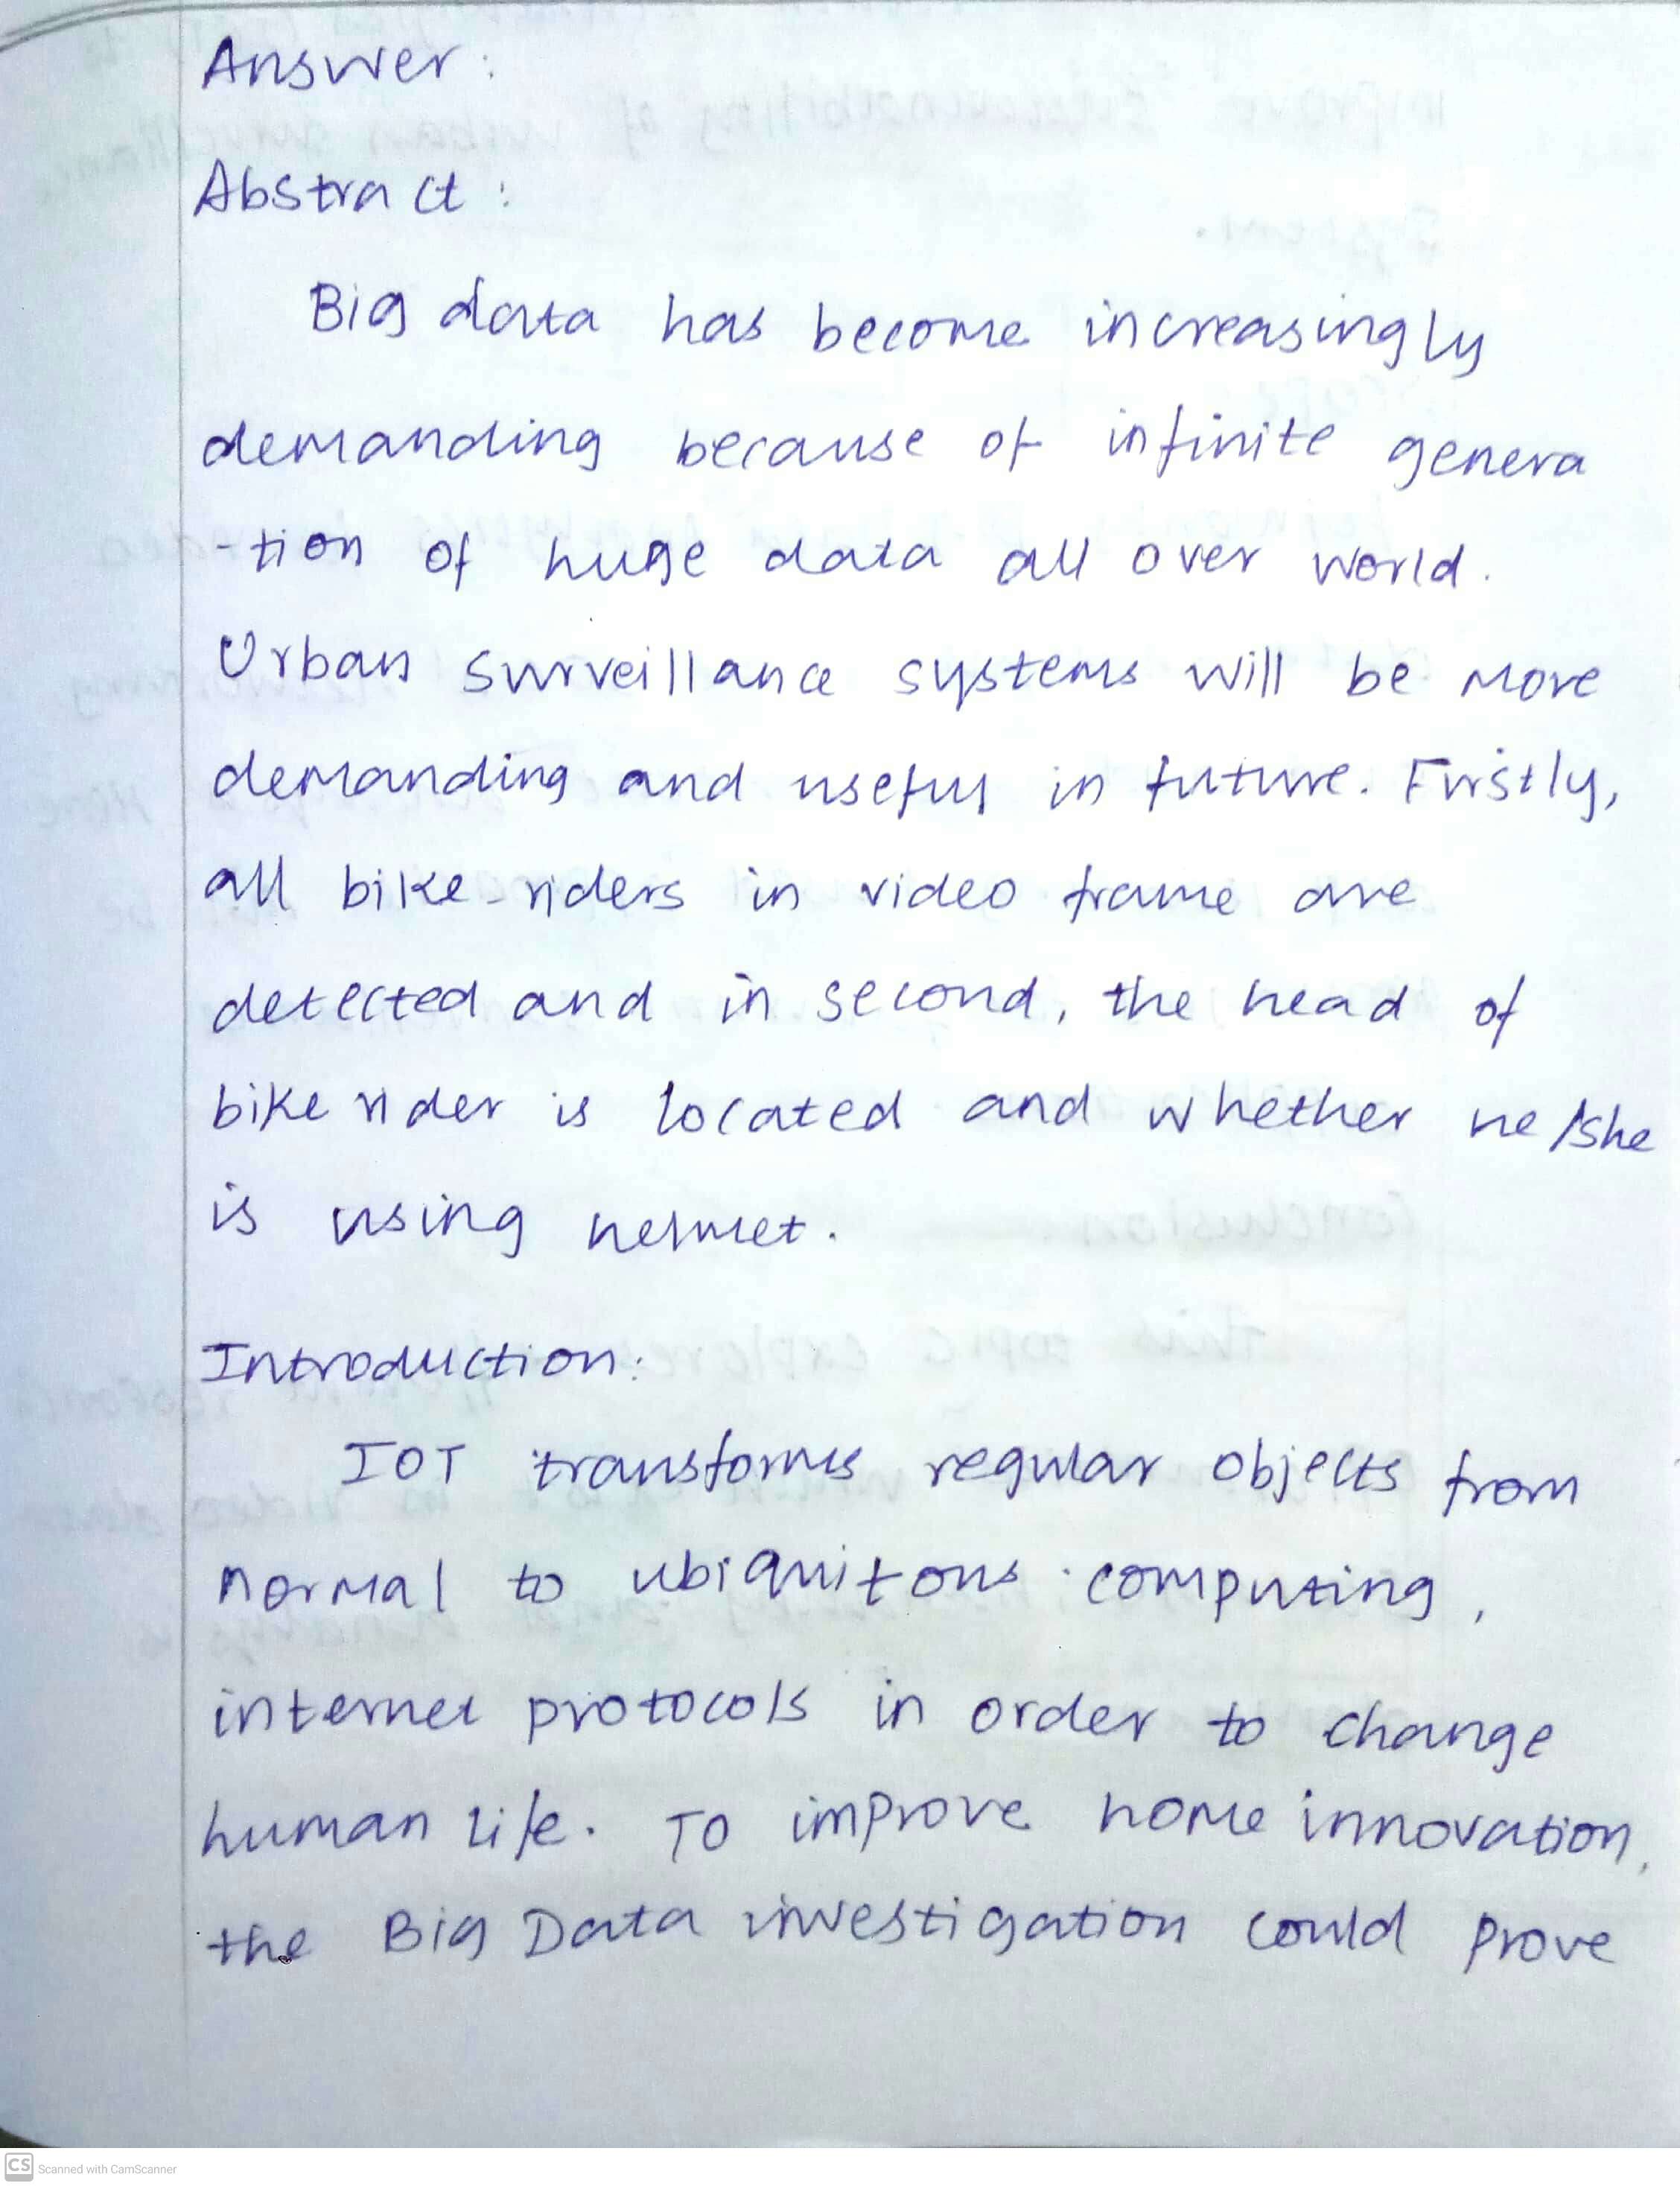 Answer :
Abstract :
Big data has become increasingly
demanding because of infinite genera
-tion of huge data all over world.
Urban surveillance systems will be more
demanding and useful in future. Firstly,
all bike-riders in video frame are
detected and in second, the head of
bike rider is located and whether he/she
is using helmet.
Introduction:
IOT transforms regular objects from
normal to ubiquitous computing,
internet protocols in order to change
human life. To improve home innovation,
the Big Data investigation could prove
CS Scanned with CamScanner